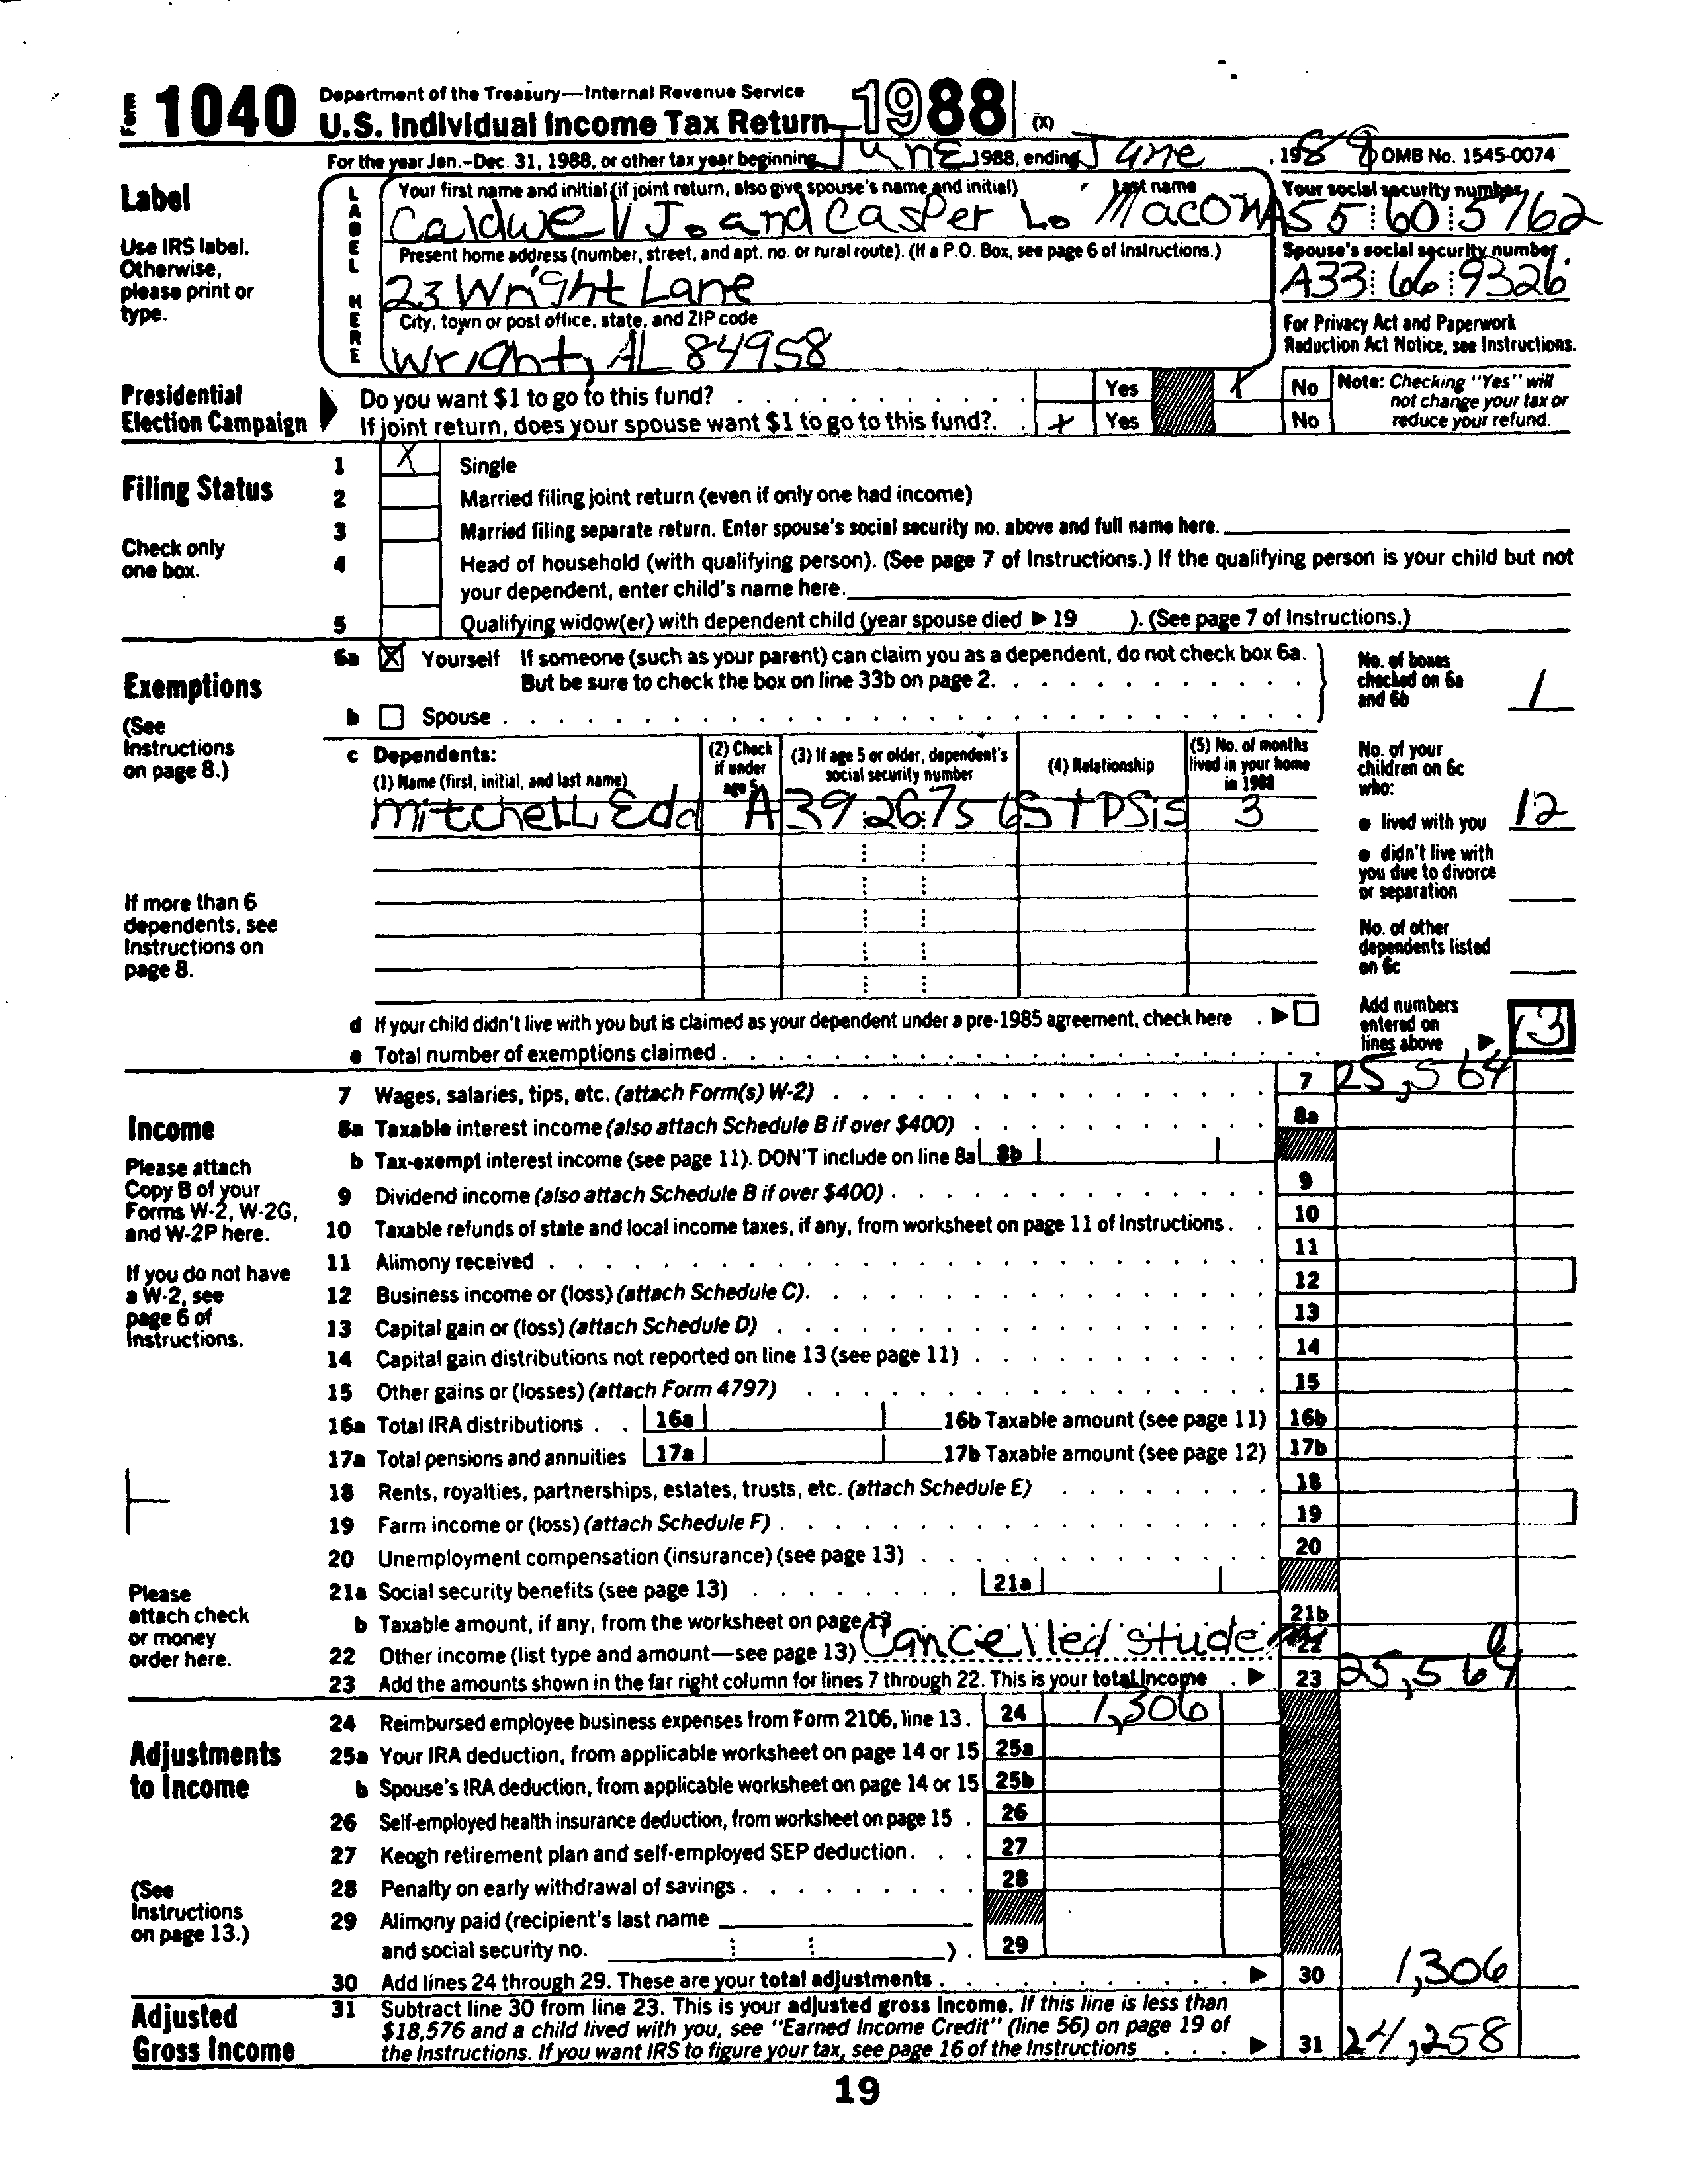 Form 1040 Department of the Treasury—Internal Revenue Service
U.S. Individual Income Tax Return 1988 (X)
For the year Jan.-Dec. 31, 1988, or other tax year beginning June 1988, ending June , 1988 OMB No. 1545-0074
Label
Use IRS label. Otherwise, please print or type.
LABEL HERE
Your first name and initial (if joint return, also give spouse's name and initial) Last name
Caldwell J. and Casper L. Macon
Your social security number
A55 60 5762
Present home address (number, street, and apt. no. or rural route). (If a P.O. Box, see page 6 of Instructions.)
23 Wright Lane
Spouse's social security number
A33 66 9326
City, town or post office, state, and ZIP code
Wright, AL 84958
For Privacy Act and Paperwork Reduction Act Notice, see Instructions.
Presidential Election Campaign
Do you want $1 to go to this fund? Yes X No
If joint return, does your spouse want $1 to go to this fund? X Yes No
Note: Checking "Yes" will not change your tax or reduce your refund.
Filing Status
Check only one box.
1 X Single
2 Married filing joint return (even if only one had income)
3 Married filing separate return. Enter spouse's social security no. above and full name here.
4 Head of household (with qualifying person). (See page 7 of Instructions.) If the qualifying person is your child but not
your dependent, enter child's name here.
5 Qualifying widow(er) with dependent child (year spouse died ▶ 19 ). (See page 7 of Instructions.)
Exemptions
(See Instructions on page 8.)
6a X Yourself If someone (such as your parent) can claim you as a dependent, do not check box 6a.
But be sure to check the box on line 33b on page 2.
b Spouse
No. of boxes checked on 6a and 6b 1
c Dependents:
(1) Name (first, initial, and last name)
(2) Check if under age 5
(3) If age 5 or older, dependent's social security number
(4) Relationship
(5) No. of months lived in your home in 1988
Mitchell Edd A39 26 756 StPSis 3
No. of your children on 6c who:
● lived with you 12
● didn't live with you due to divorce or separation
No. of other dependents listed on 6c
If more than 6 dependents, see Instructions on page 8.
d If your child didn't live with you but is claimed as your dependent under a pre-1985 agreement, check here ▶
e Total number of exemptions claimed
Add numbers entered on lines above ▶ 13
Income
Please attach Copy B of your Forms W-2, W-2G, and W-2P here.
If you do not have a W-2, see page 6 of Instructions.
Please attach check or money order here.
7 Wages, salaries, tips, etc. (attach Form(s) W-2) 7 25,564
8a Taxable interest income (also attach Schedule B if over $400) 8a
b Tax-exempt interest income (see page 11). DON'T include on line 8a 8b
9 Dividend income (also attach Schedule B if over $400) 9
10 Taxable refunds of state and local income taxes, if any, from worksheet on page 11 of Instructions 10
11 Alimony received 11
12 Business income or (loss) (attach Schedule C) 12
13 Capital gain or (loss) (attach Schedule D) 13
14 Capital gain distributions not reported on line 13 (see page 11) 14
15 Other gains or (losses) (attach Form 4797) 15
16a Total IRA distributions 16a 16b Taxable amount (see page 11) 16b
17a Total pensions and annuities 17a 17b Taxable amount (see page 12) 17b
18 Rents, royalties, partnerships, estates, trusts, etc. (attach Schedule E) 18
19 Farm income or (loss) (attach Schedule F) 19
20 Unemployment compensation (insurance) (see page 13) 20
21a Social security benefits (see page 13) 21a
b Taxable amount, if any, from the worksheet on page 13 21b
22 Other income (list type and amount—see page 13) Cancelled stude 22
23 Add the amounts shown in the far right column for lines 7 through 22. This is your total income ▶ 23 25,564
Adjustments to Income
(See Instructions on page 13.)
24 Reimbursed employee business expenses from Form 2106, line 13. 24 1,306
25a Your IRA deduction, from applicable worksheet on page 14 or 15 25a
b Spouse's IRA deduction, from applicable worksheet on page 14 or 15 25b
26 Self-employed health insurance deduction, from worksheet on page 15 26
27 Keogh retirement plan and self-employed SEP deduction 27
28 Penalty on early withdrawal of savings 28
29 Alimony paid (recipient's last name
and social security no. ) 29
30 Add lines 24 through 29. These are your total adjustments ▶ 30 1,306
Adjusted Gross Income
31 Subtract line 30 from line 23. This is your adjusted gross income. If this line is less than
$18,576 and a child lived with you, see "Earned Income Credit" (line 56) on page 19 of
the Instructions. If you want IRS to figure your tax, see page 16 of the Instructions ▶ 31 24,258
19